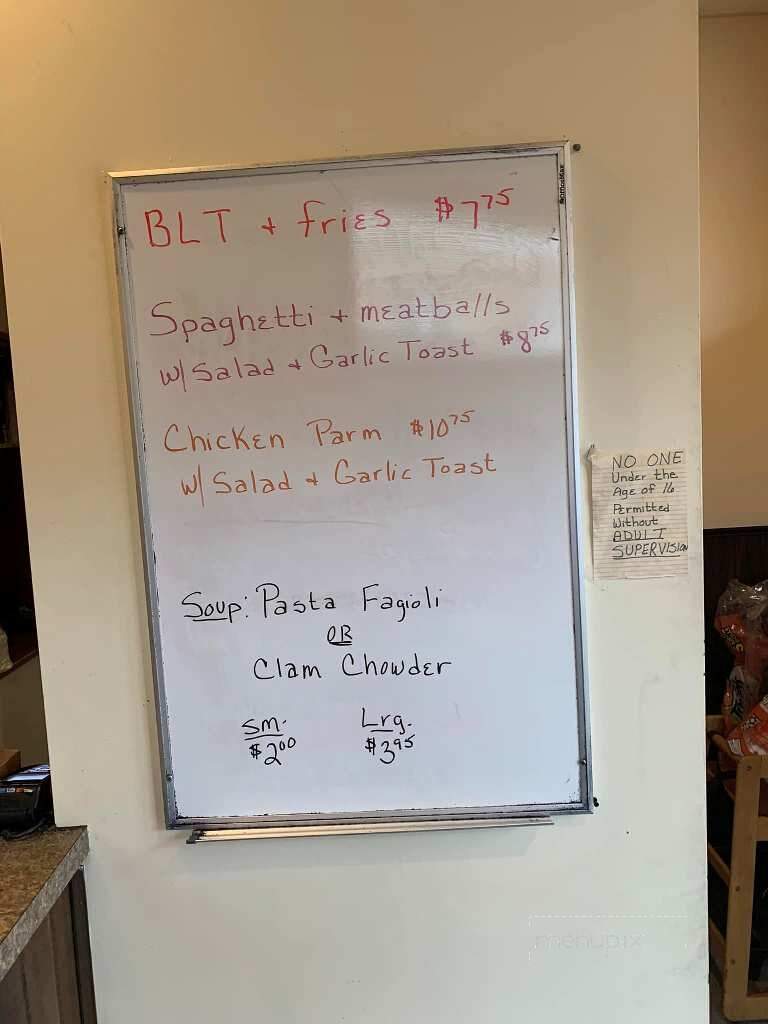 BLT + fries $7.75
Spaghetti + meatballs
w/ Salad + Garlic Toast $8.75
Chicken Parm $10.75
w/ Salad + Garlic Toast
Soup: Pasta Fagioli
OR
Clam Chowder
Sm. Lrg.
$2.00 $3.95
NO ONE
Under the
Age of 16
Permitted
Without
ADULT
SUPERVISION
menupix